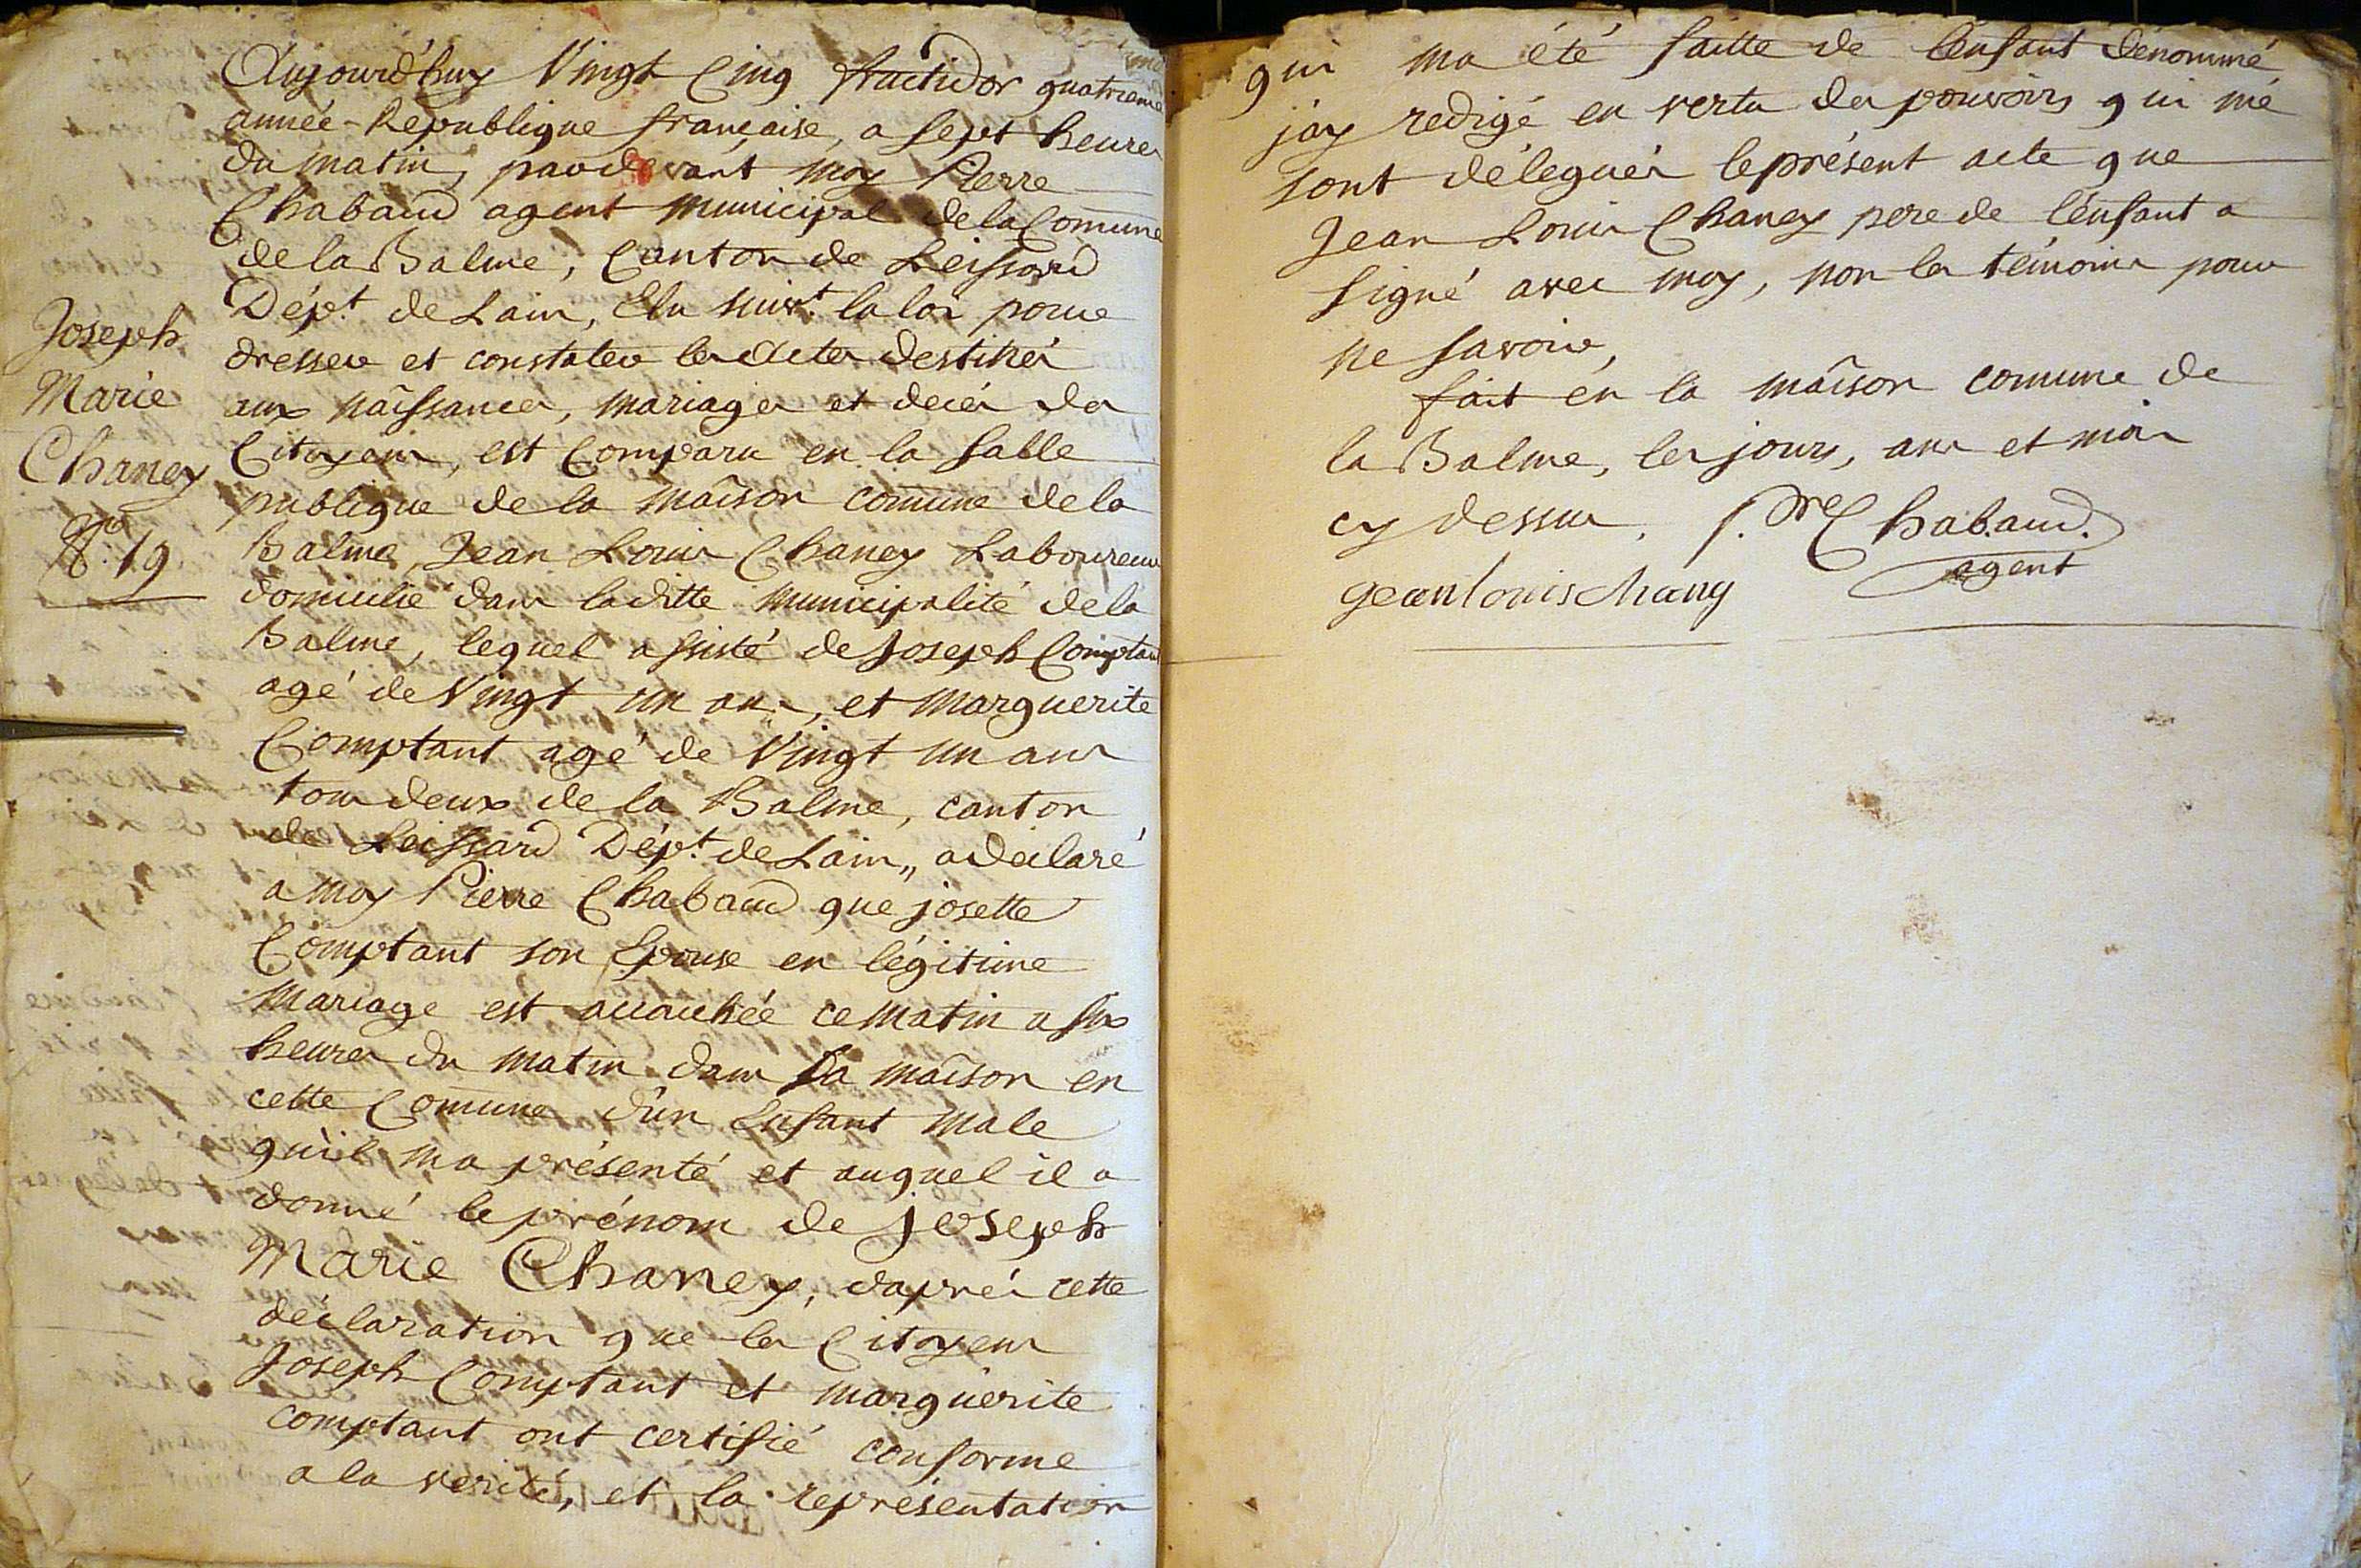 Aujourd'huy Vingt Cinq fructidor quatrieme
année Republique française, a sept heures
du matin, pardevant moy Pierre
Chabaud agent municipal de la Comune
de la Balme, Canton de Leissard
Dépt. de Lain, Elu suivt. la loi pour
dresser et constater les actes destinés
aux naîssances, mariages et decés des
Citoyens, est Comparu en la salle
publique de la maîson comune de la
Balme, Jean Louis Chaney Laboureur
domicilié dans laditte municipalité de la
Balme, lequel assisté de Joseph Comptant
agé de Vingt un ans, et Marguerite
Comptant agé de Vingt un ans
tous deux de la Balme, canton
de Leissard Dépt. de Lain,, a declaré
a moy Pierre Chabaud que josette
Comptant son Epouse en légitime
Mariage est accouchée ce matin a six
heures du matin dans sa maîson en
cette Comune d'un Enfant male
qu'il ma présenté et auquel il a
donné le prénom de joseph
Marie Chaney, daprés cette
déclaration que les Citoyens
Joseph Comptant et marguerite
comptant ont certifié conforme
a la verité, et la représentation
Joseph
Marie
Chaney
No. 19
qui ma été faitte de l'enfant dénommé
j'ay redigé en vertu des pouvoirs qui me
sont délegués le présent acte que
Jean Louis Chaney pere de l'enfant a
signé avec moy, non les témoins pour
ne savoir,
fait en la maîson comune de
la Balme, les jours, ans et mois
cy dessus. Pre Chabaud.
agent
gean louis chany